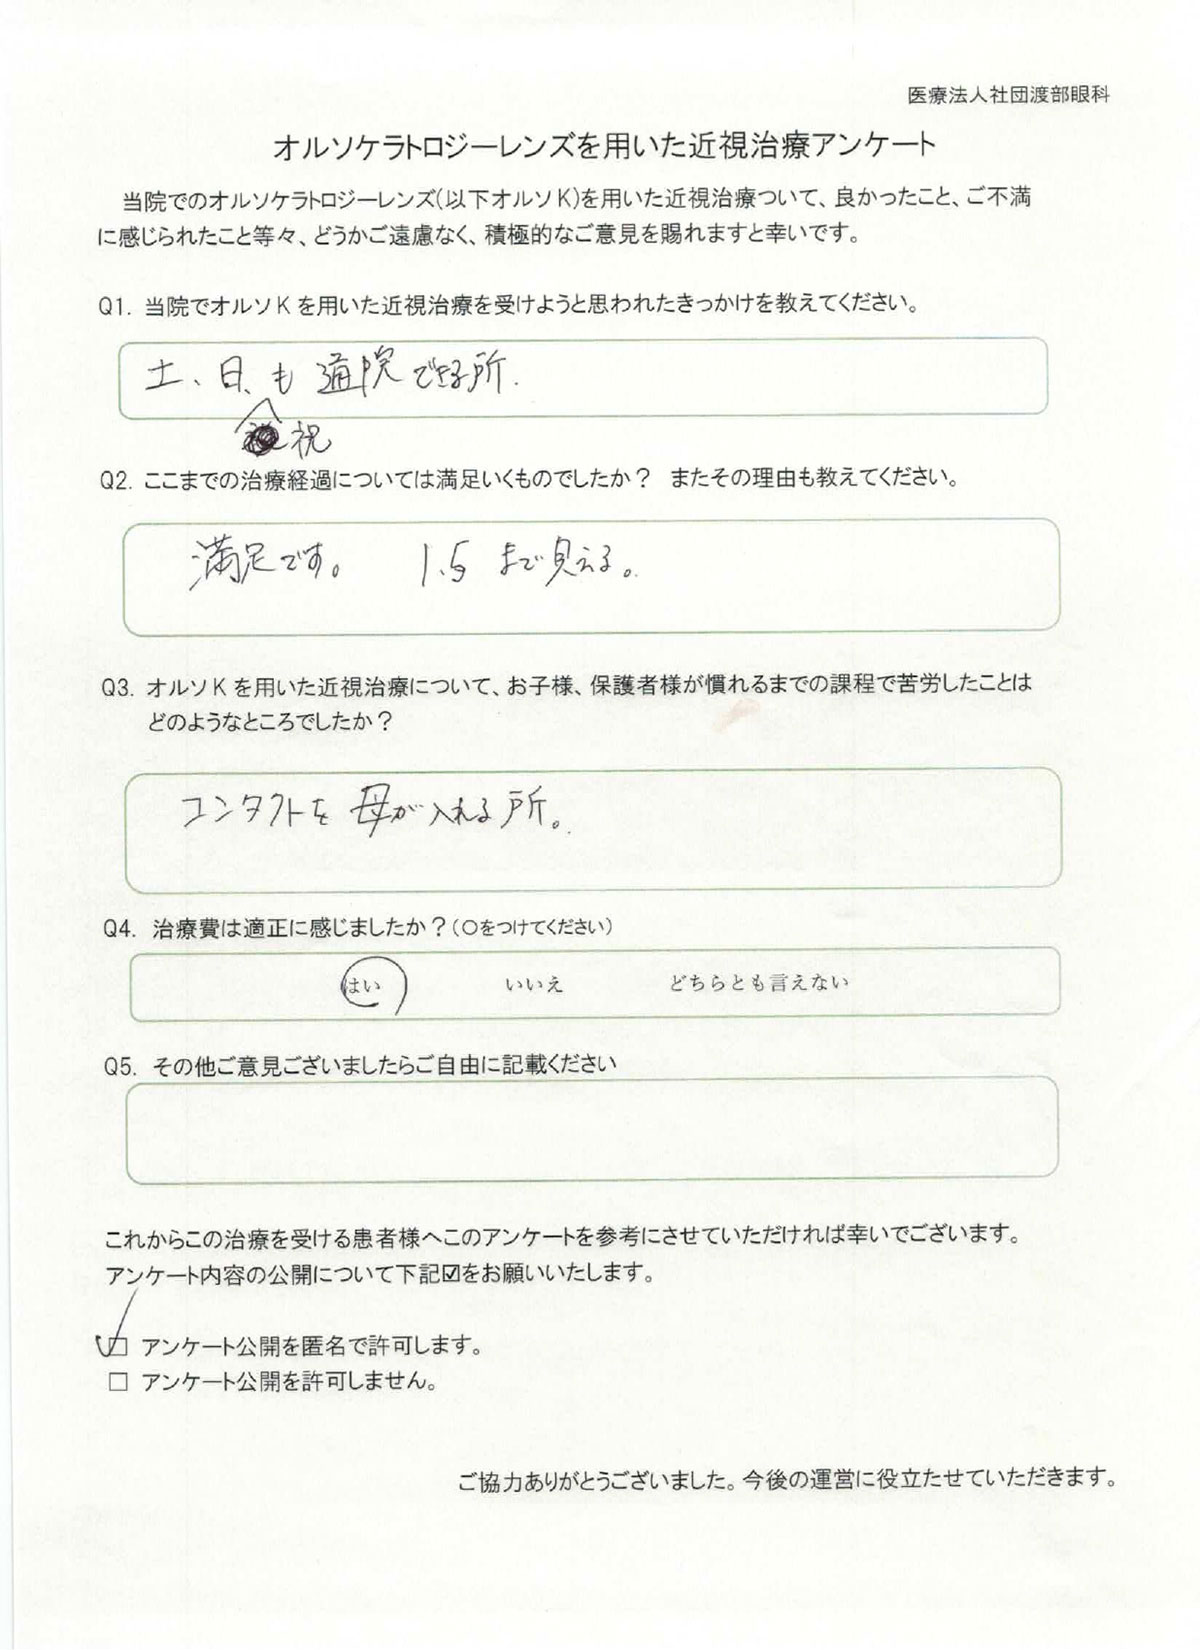 医療法人社団渡部眼科
オルソケラトロジーレンズを用いた近視治療アンケート
当院でのオルソケラトロジーレンズ(以下オルソK)を用いた近視治療ついて、良かったこと、ご不満
に感じられたこと等々、どうかご遠慮なく、積極的なご意見を賜れますと幸いです。
Q1. 当院でオルソKを用いた近視治療を受けようと思われたきっかけを教えてください。
土、日、も通院できる所.
祝
Q2. ここまでの治療経過については満足いくものでしたか？ またその理由も教えてください。
満足です。 1.5まで見える。
Q3. オルソKを用いた近視治療について、お子様、保護者様が慣れるまでの課程で苦労したことは
どのようなところでしたか？
コンタクトを母が入れる所。
Q4. 治療費は適正に感じましたか？(○をつけてください)
はい いいえ どちらとも言えない
Q5. その他ご意見ございましたらご自由に記載ください
これからこの治療を受ける患者様へこのアンケートを参考にさせていただければ幸いでございます。
アンケート内容の公開について下記☑をお願いいたします。
☑ アンケート公開を匿名で許可します。
□ アンケート公開を許可しません。
ご協力ありがとうございました。今後の運営に役立たせていただきます。